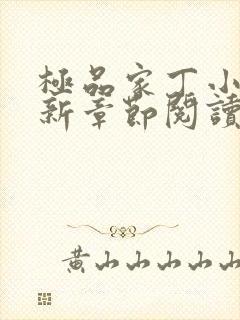 極品家丁小
新章節閱讀
黃山山山山